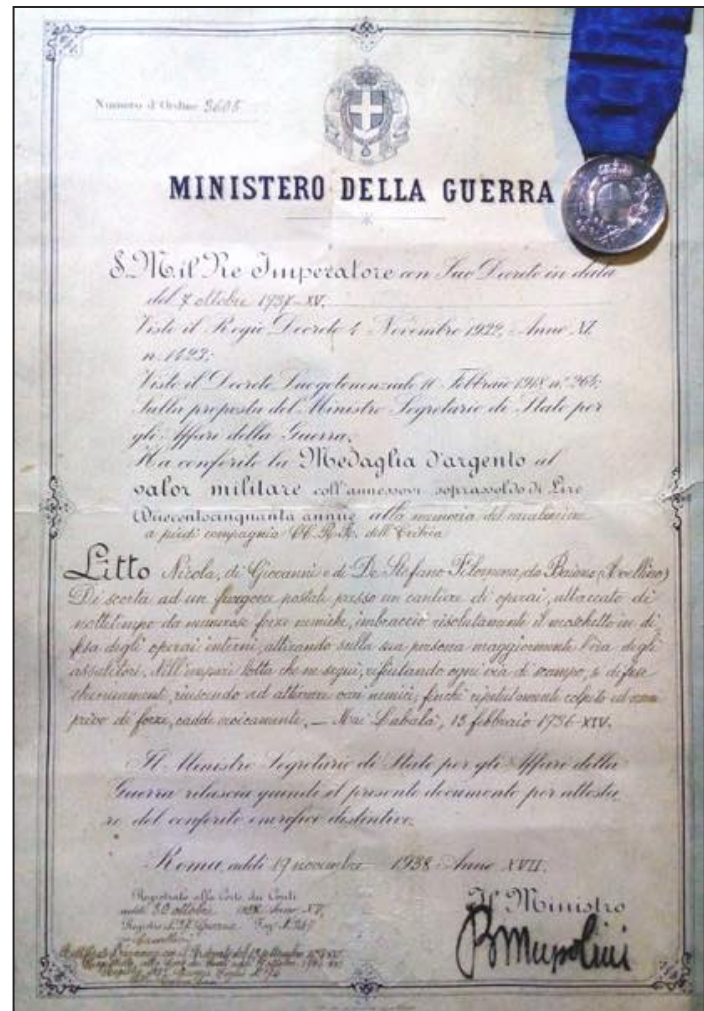 Numero d'Ordine 3605
MINISTERO DELLA GUERRA
S. M. il Re Imperatore con Suo Decreto in data
del 7 ottobre 1937-XV.
Visto il Regio Decreto 4 Novembre 1922, Anno XI
n. 1423;
Visto il Decreto Luogotenenziale 10 Febbraio 1918 n.° 265;
Sulla proposta del Ministro Segretario di Stato per
gli Affari della Guerra;
Ha conferito la Medaglia d'argento al
valor militare coll'annessovi soprassoldo di Lire
Duecentocinquanta annue alla memoria del carabiniere
a piedi compagnia CC. R.R. dell'Eritrea
Litto Nicola, di Giovanni e di De Stefano Filomena, da Baiano (Avellino)
Di scorta ad un furgone postale presso un cantiere di operai, attaccato di
nottetempo da numerose forze nemiche, imbracciò risolutamente il moschetto in di
fesa degli operai inermi, attirando sulla sua persona maggiormente l'ira degli
assalitori. Nell'impari lotta che ne seguì, rifiutando ogni via di scampo, si difese
strenuamente, riuscendo ad atterrare vari nemici, finchè ripetutamente colpito ed
privo di forze, cadde eroicamente. — Mai Lahalà, 13 febbraio 1936-XIV.
Il Ministro Segretario di Stato per gli Affari della
Guerra rilascia quindi il presente documento per attesta
re del conferito onorifico distintivo.
Roma, addì 19 novembre 1938 Anno XVII.
Registrato alla Corte dei Conti
addì 30 ottobre Anno XV
Registro Guerra
Il Ministro
B Mussolini